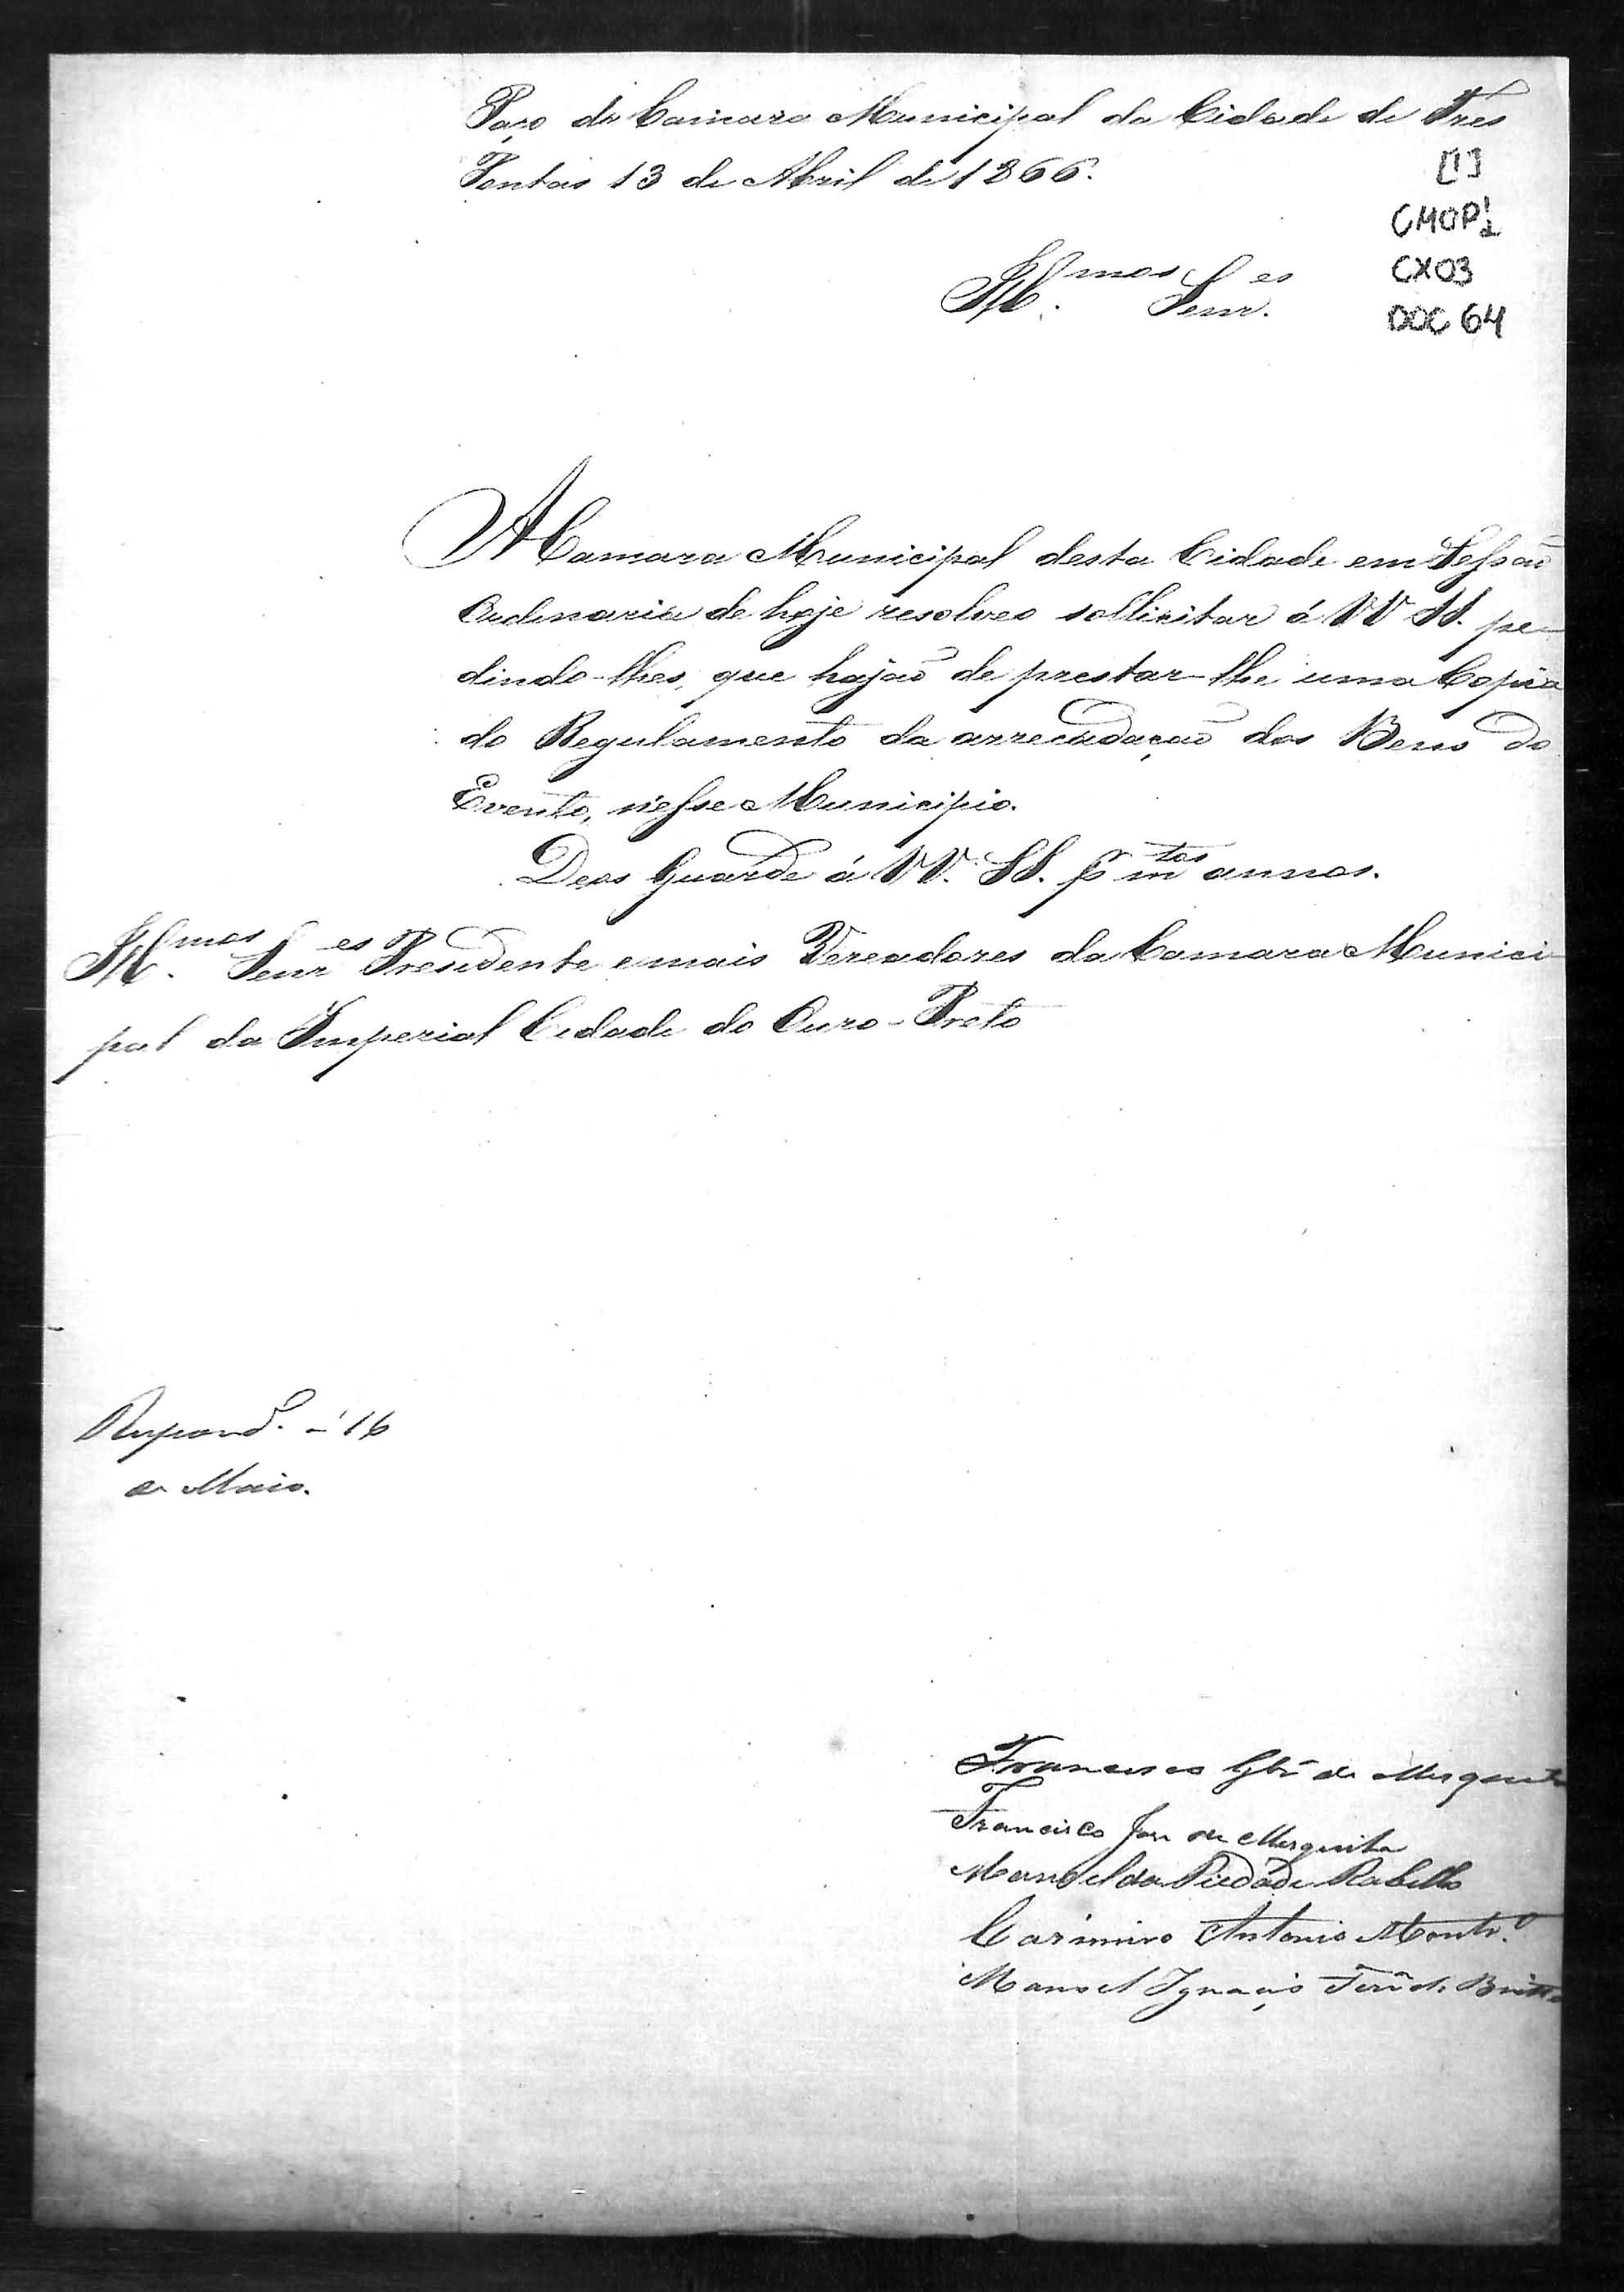 Paço da Camara Municipal da Cidade de Tres
Pontas 13 de Abril de 1866.
[1]
CMOP
CX03
DOC 64
Ill.mos Senr.es
A Camara Municipal desta Cidade em Sessaõ
Ordinaria de hoje resolveo sollicitar á VV SS. pe-
dindo-lhes, que hajaõ de prestar-lhe uma Copia
do Regulamento da arrecadaçaõ dos Bens do
Evento, n'esse Municipio.
Deos Guarde á VV. SS. p.r m.tos annos.
Ill.mos Senr.es Presidente e mais Vereadores da Camara Munici-
pal da Imperial Cidade do Ouro-Preto
Respond. á 16
de Maio.
Francisco de Mesquita
Francisco José de Mesquita
Manoel da Piedade Rabello
Carimiro Antonio Montr.o
Manoel Ignacio de Britto